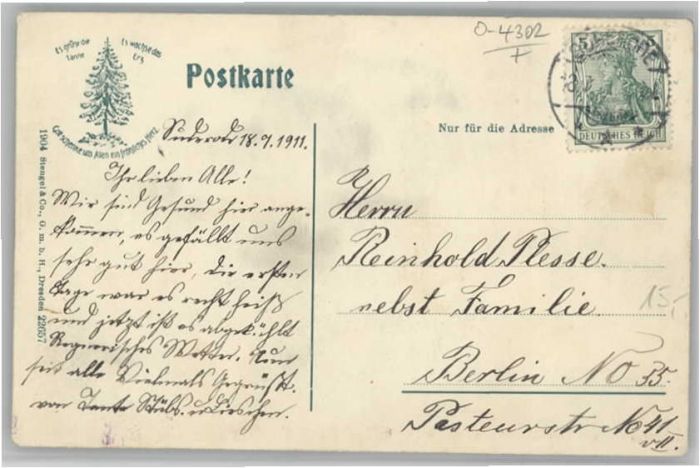 O-4302
Es grüne die Tanne
Es wachse das Erz
Gott schenke uns Allen ein fröhliches Herz
Postkarte
DEUTSCHES REICH
Nur für die Adresse
1904 Stengel & Co., G. m. b. H., Dresden 22057
Suderode 18.7.1911.
Ihr lieben Alle!
Wir sind Gesund hier ange-
kommen, es gefällt uns
sehr gut hier, die ersten
Tage war es recht heiß
und jetzt ist es abgekühlt
Regnerisches Wetter. Nun
seit alle Vielmals Gegrüßt.
von Tante
Herrn
Reinhold Plesse.
nebst Familie
Berlin NO 55.
Pasteurstr No 41
v III.
15,-